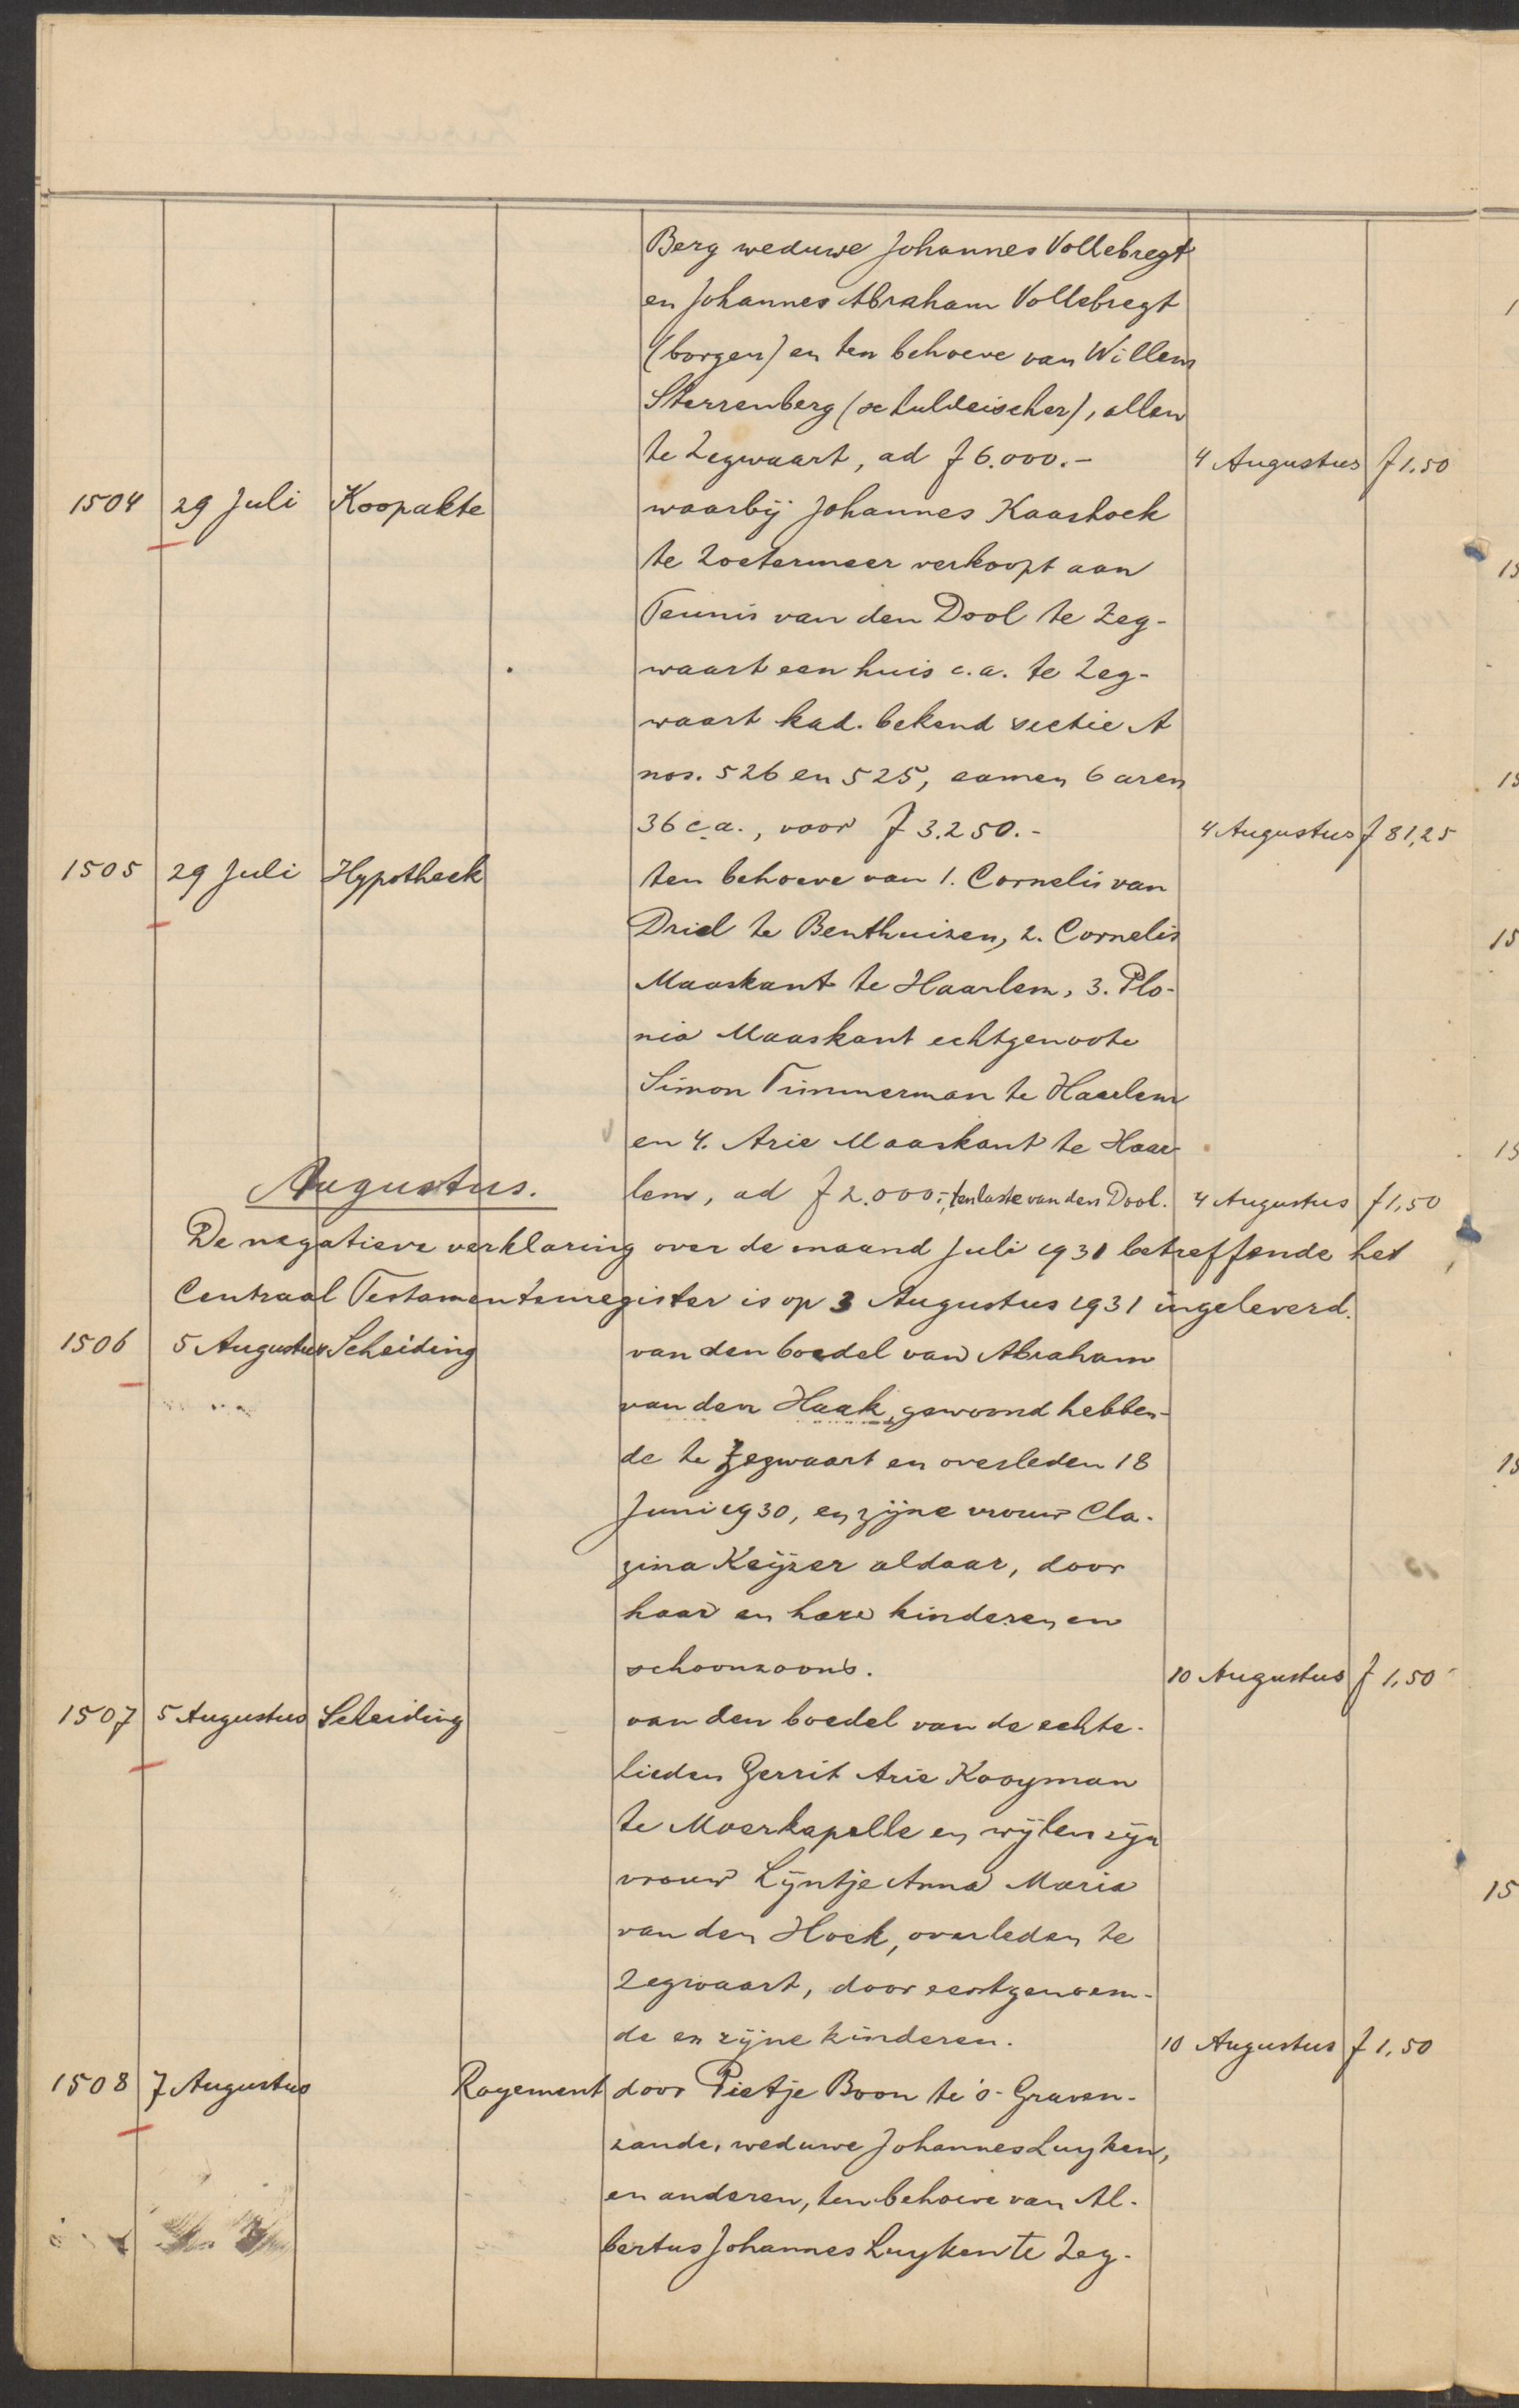 Berg weduwe Johannes Vollebregt
en Johannes Abraham Vollebregt
(borgen) en ten behoeve van Willem
Sterrenberg (schuldeischer), allen
te Zegwaart, ad f 6.000.- 4 Augustus f 1,50
1504 29 Juli Koopakte waarbij Johannes Kaashoek
te Zoetermeer verkoopt aan
Teunis van den Dool te Zeg-
waart een huis c.a. te Zeg-
waart kad. bekend sectie A
nos. 526 en 525, samen 6 aren
36 c.a., voor f 3.250.- 4 Augustus f 81,25
1505 29 Juli Hypotheek ten behoeve van 1. Cornelis van
Driel te Benthuizen, 2. Cornelis
Maaskant te Haarlem, 3. Plo-
nia Maaskant echtgenoote
Simon Timmerman te Haarlem
en 4. Arie Maaskant te Haar-
Augustus. lem, ad f 2.000.-, ten laste van den Dool. 4 Augustus f 1,50
De negatieve verklaring over de maand Juli 1931 betreffende het
Centraal Testamentenregister is op 3 Augustus 1931 ingeleverd.
1506 5 Augustus Scheiding van den boedel van Abraham
van den Haak, gewoond hebben-
de te Zegwaart en overleden 18
Juni 1930, en zijne vrouw Cla-
zina Keijzer aldaar, door
haar en hare kinderen en
schoonzoons. 10 Augustus f 1,50
1507 5 Augustus Scheiding van den boedel van de echte-
lieden Gerrit Arie Kooyman
te Moerkapelle en wijlen zijn
vrouw Lijntje Anna Maria
van den Hoek, overleden te
Zegwaart, door eerstgenoem-
de en zijne kinderen. 10 Augustus f 1,50
1508 7 Augustus Royement door Pietje Boon te 's-Graven-
zande, weduwe Johannes Luyken,
en anderen, ten behoeve van Al-
bertus Johannes Luyken te Zeg-